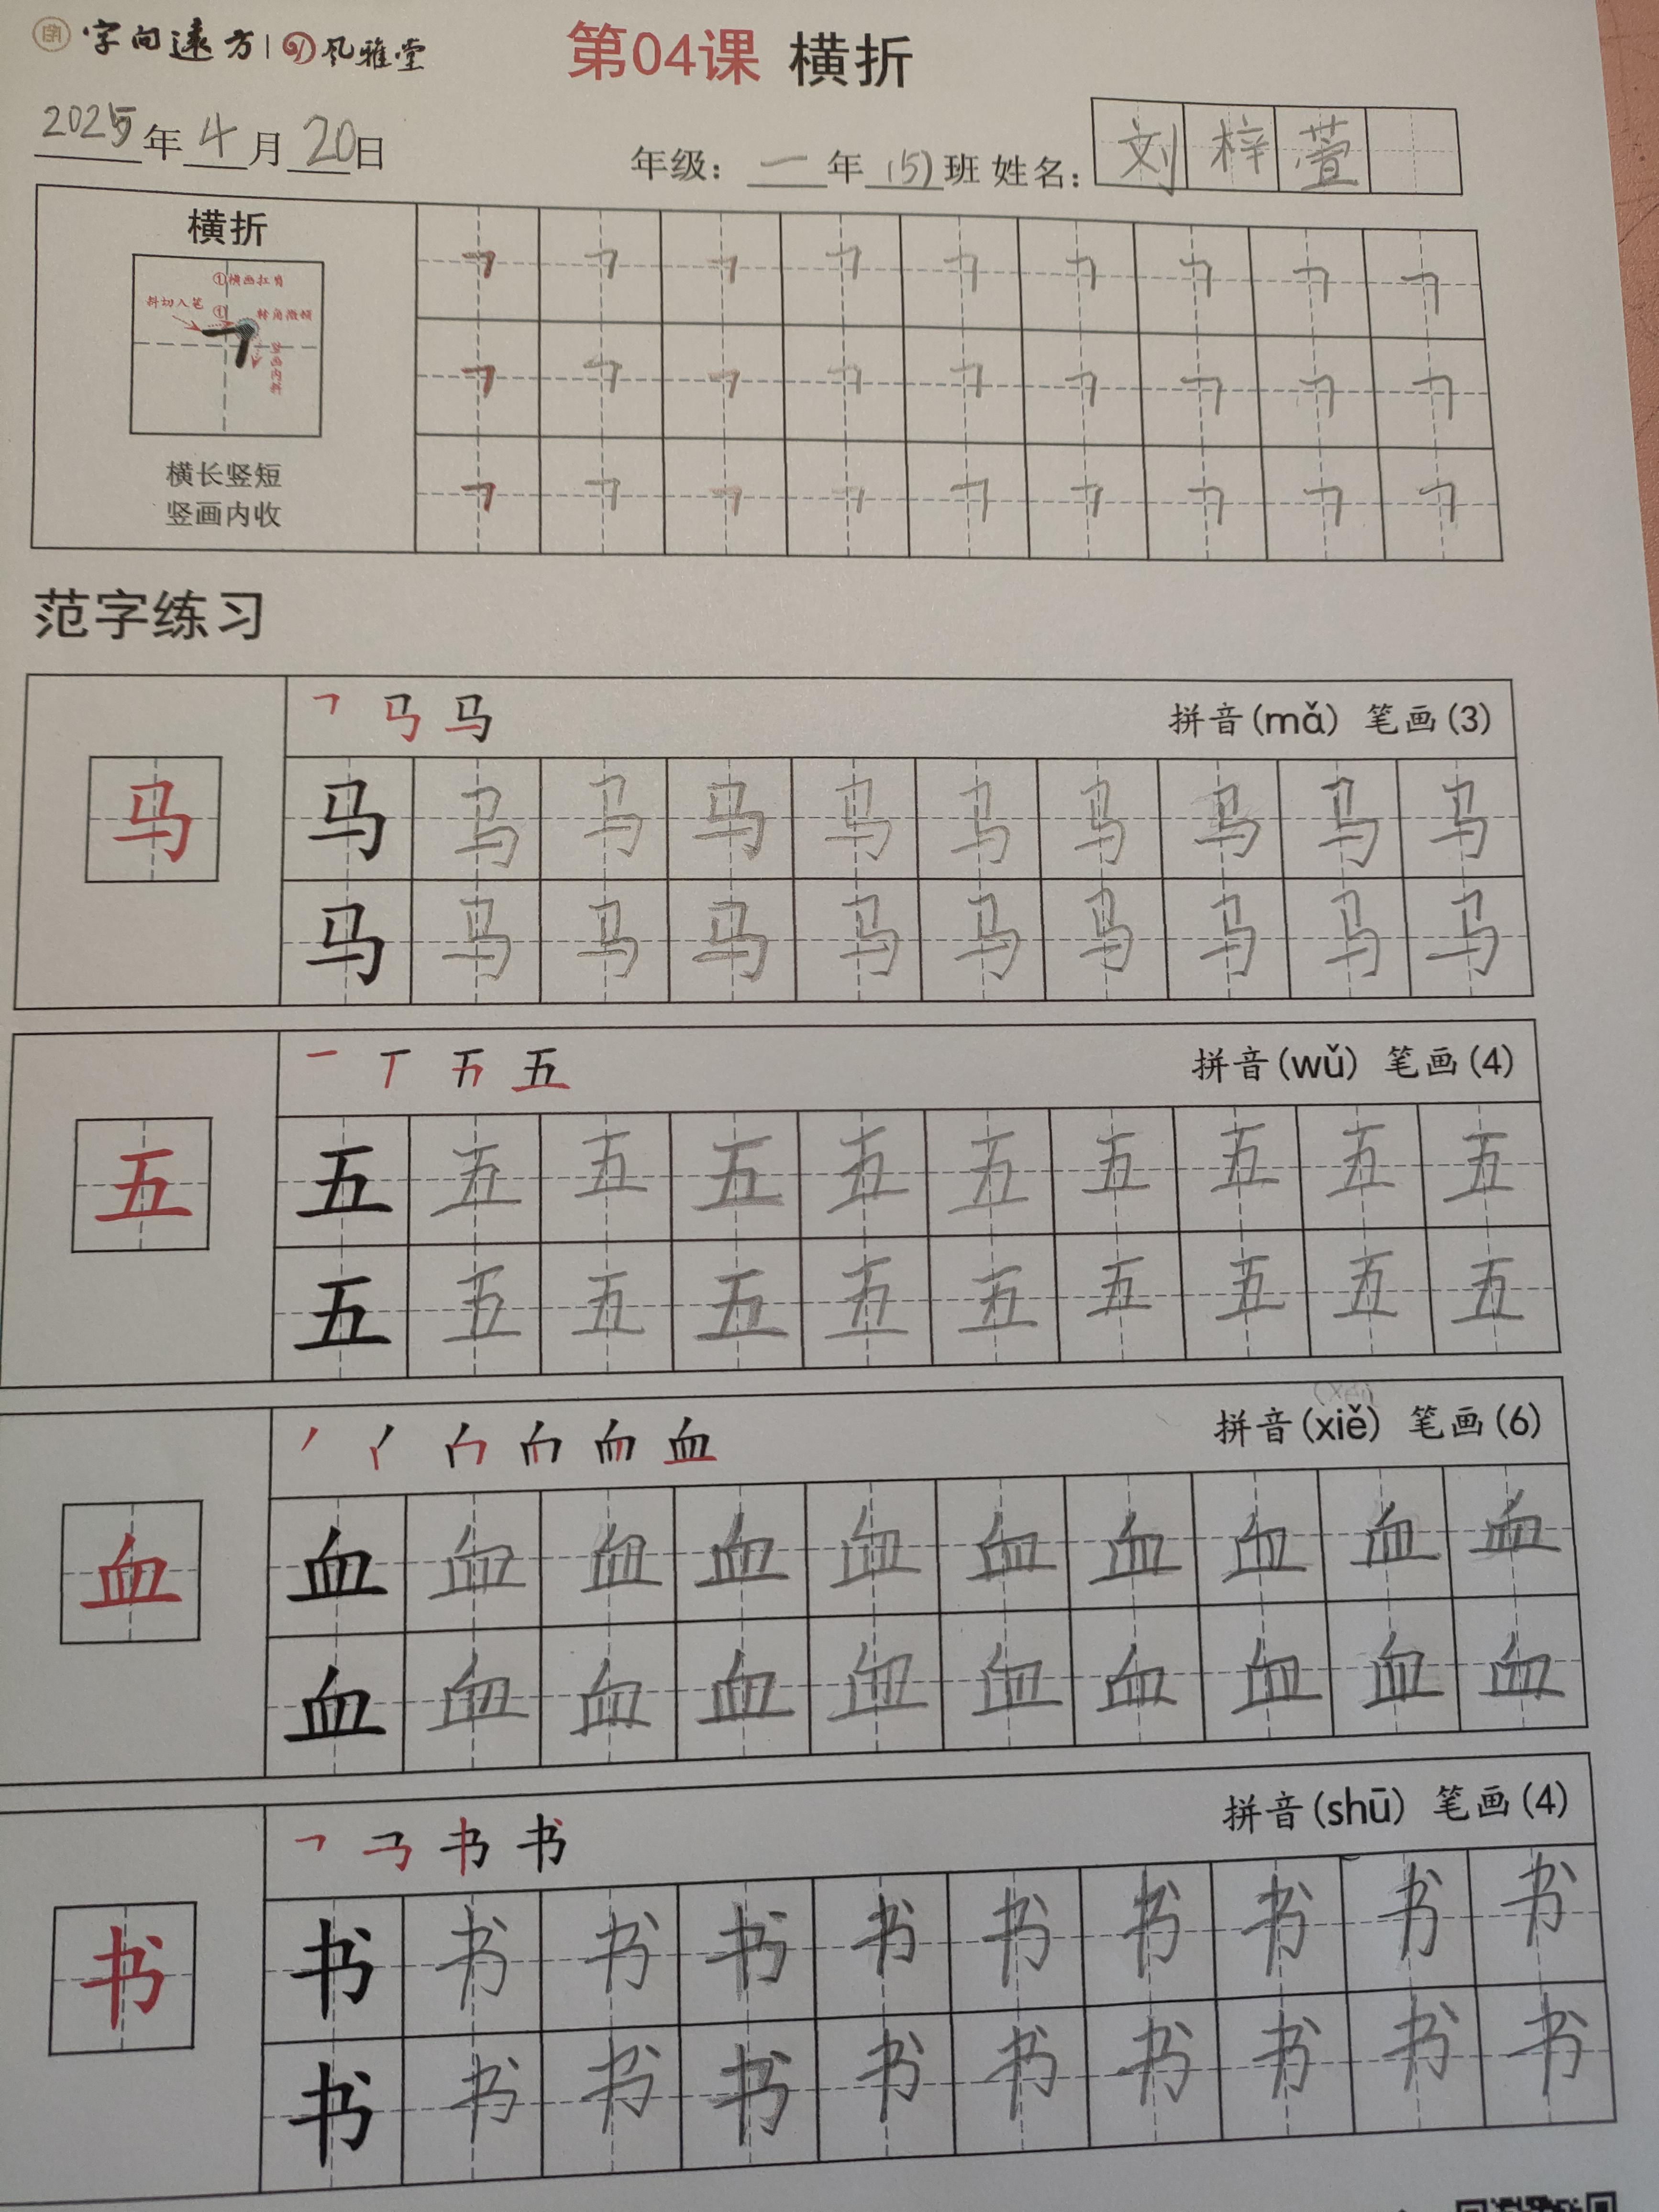 字向远方 | 风雅堂 第04课 横折
2025年4月20日 年级：一年(5)班 姓名：刘梓萱
横折
①横画扛肩
斜切入笔 ① 转角微顿
竖画内斜
横长竖短
竖画内收
范字练习
马 拼音(mǎ) 笔画(3)
马 马 马 马 马 马 马 马 马 马 马
马 马 马 马 马 马 马 马 马 马
五 拼音(wǔ) 笔画(4)
五 五 五 五 五 五 五 五 五 五 五
五 五 五 五 五 五 五 五 五 五
血 拼音(xiě) 笔画(6)
血 血 血 血 血 血 血 血 血 血 血
血 血 血 血 血 血 血 血 血 血
书 拼音(shū) 笔画(4)
书 书 书 书 书 书 书 书 书 书 书
书 书 书 书 书 书 书 书 书 书